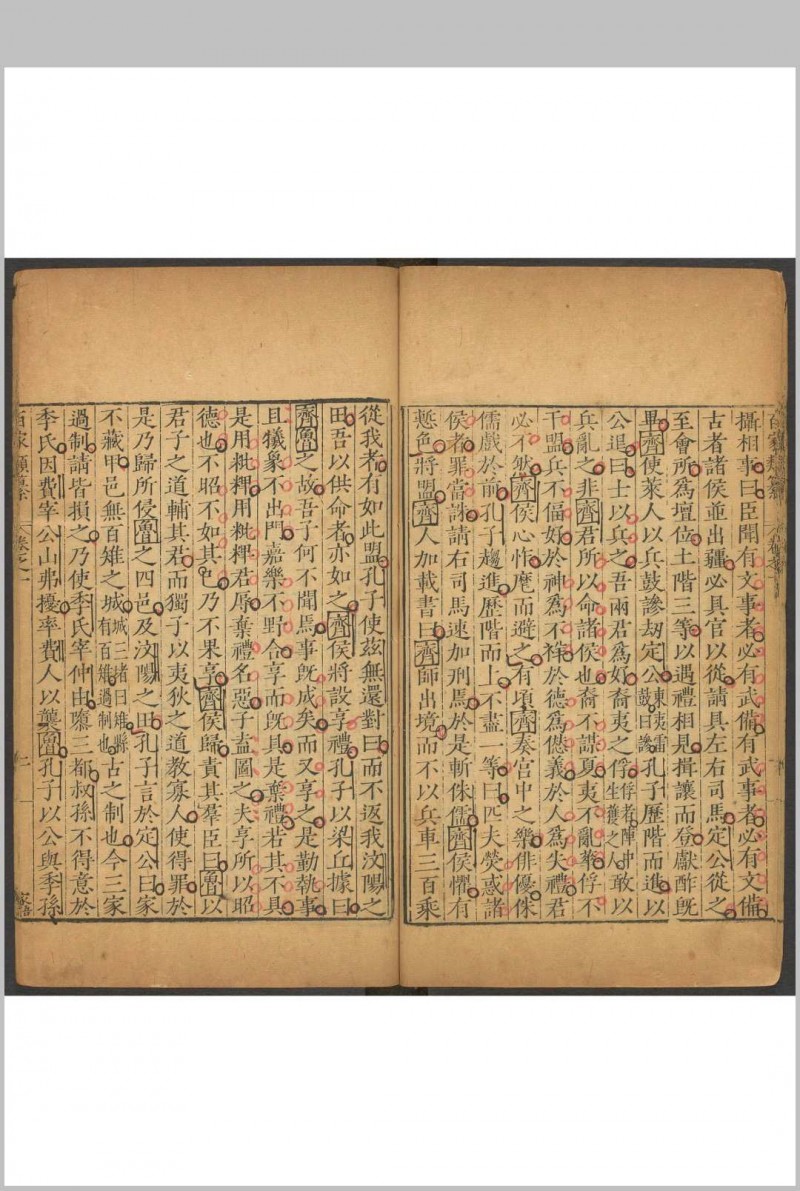 攝相事曰臣聞有文事者必有武備有武事者必有文備
古者諸侯並出疆必具官以從請具左右司馬定公從之
至會所爲壇位土階三等以遇禮相見揖讓而登獻酢既
畢齊使萊人以兵鼓謲劫定公東夷雷鼓曰謲孔子歷階而進以
公退曰士以兵之吾兩君爲好裔夷之俘俘者陣中生獲之人敢以
兵亂之非齊君所以命諸侯也裔不謀夏夷不亂華俘不
干盟兵不偪好於神爲不祥於德爲愆義於人爲失禮君
必不然齊侯心怍麾而避之有頃齊奏宮中之樂俳優侏
儒戲於前孔子趨進歷階而上不盡一等曰匹夫熒惑諸
侯者罪當誅請右司馬速加刑焉於是斬侏儒齊侯懼有
慙色將盟齊人加載書曰齊師出境而不以兵車三百乘
從我者有如此盟孔子使茲無還對曰而不返我汶陽之
田吾以供命者亦如之齊侯將設享禮孔子以梁丘據曰
齊魯之故吾子何不聞焉事既成矣而又享之是勤執事
且犧象不出門嘉樂不野合享而既具是棄禮若其不具
是用粃粺用粃粺君辱棄禮名惡子盍圖之夫享所以昭
德也不昭不如其已乃不果享齊侯歸責其羣臣曰魯以
君子之道輔其君而獨子以夷狄之道教寡人使得罪於
是乃歸所侵魯之四邑及汶陽之田孔子言於定公曰家
不藏甲邑無百雉之城城三堵曰雉縣有百雉過制也古之制也今三家
過制請皆損之乃使季氏宰仲由隳三都叔孫不得意於
季氏因費宰公山弗擾率費人以襲魯孔子以公與季孫